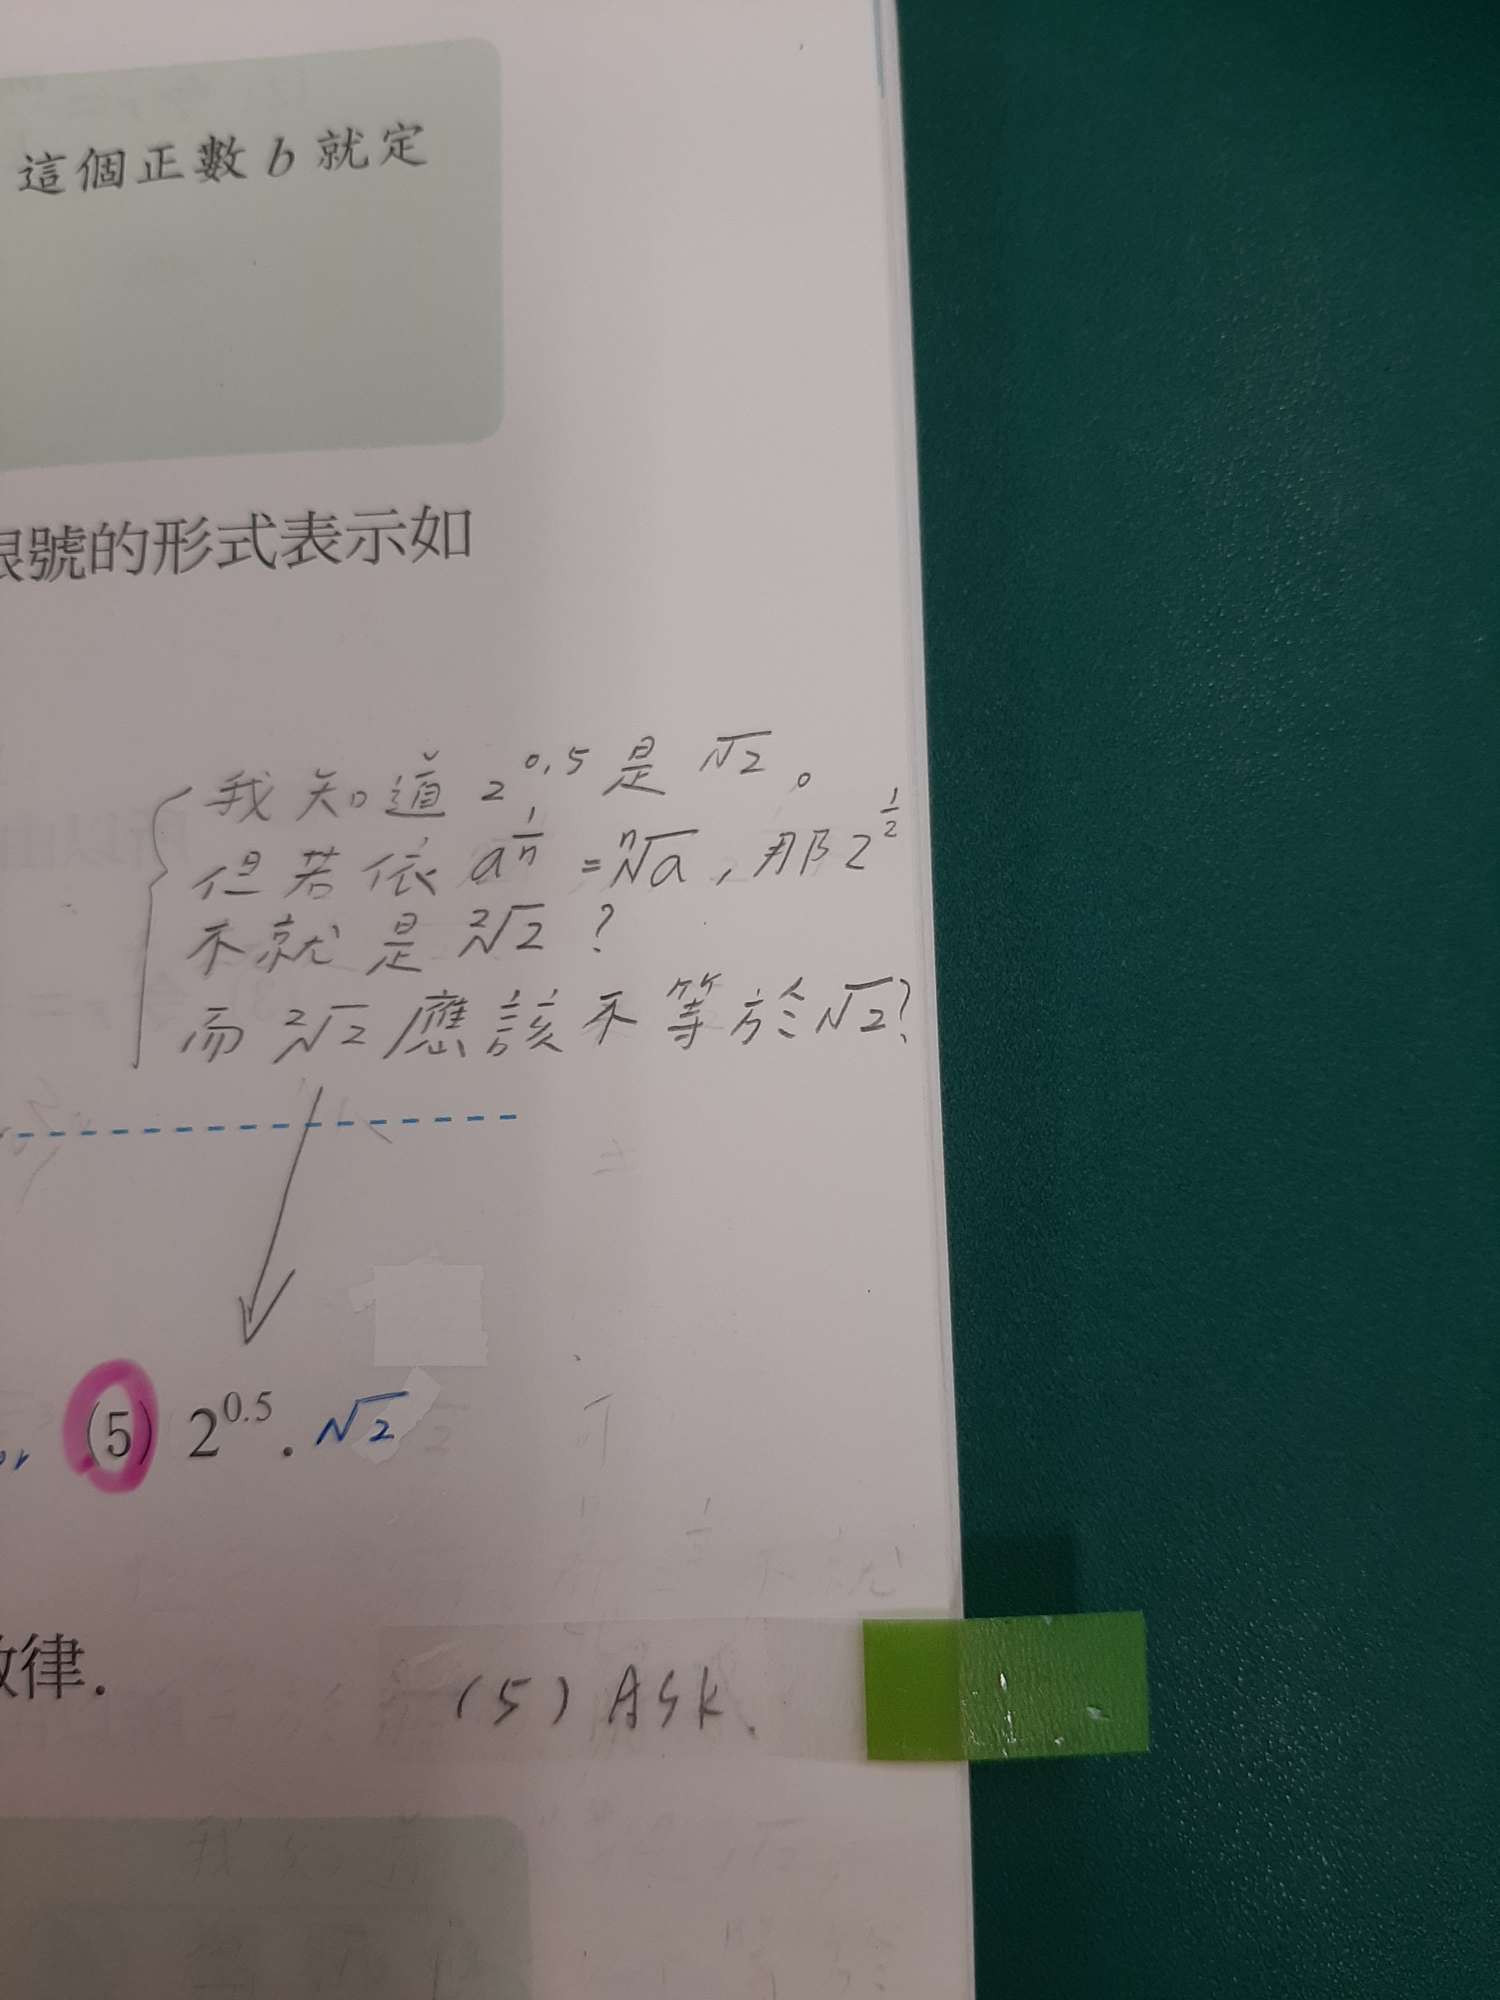 這個正數 b 就定
號的形式表示如
我知道 2^0.5 是 √2。
但若依 a^(1/n) = ⁿ√a , 那 2^(1/2)
不就是 ²√2 ?
而 ²√2 應該不等於 √2?
(5) 2^0.5 . √2
律.
(5) ASK.